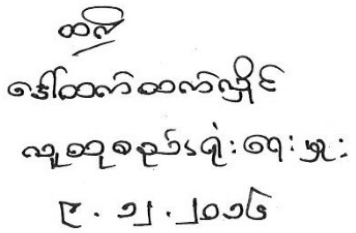 ထလီ
ဒေါ်ထက်ထက်လှိုင်
လူထုစည်းရုံးရေးမှူး
၉.၁၂.၂၀၁၆